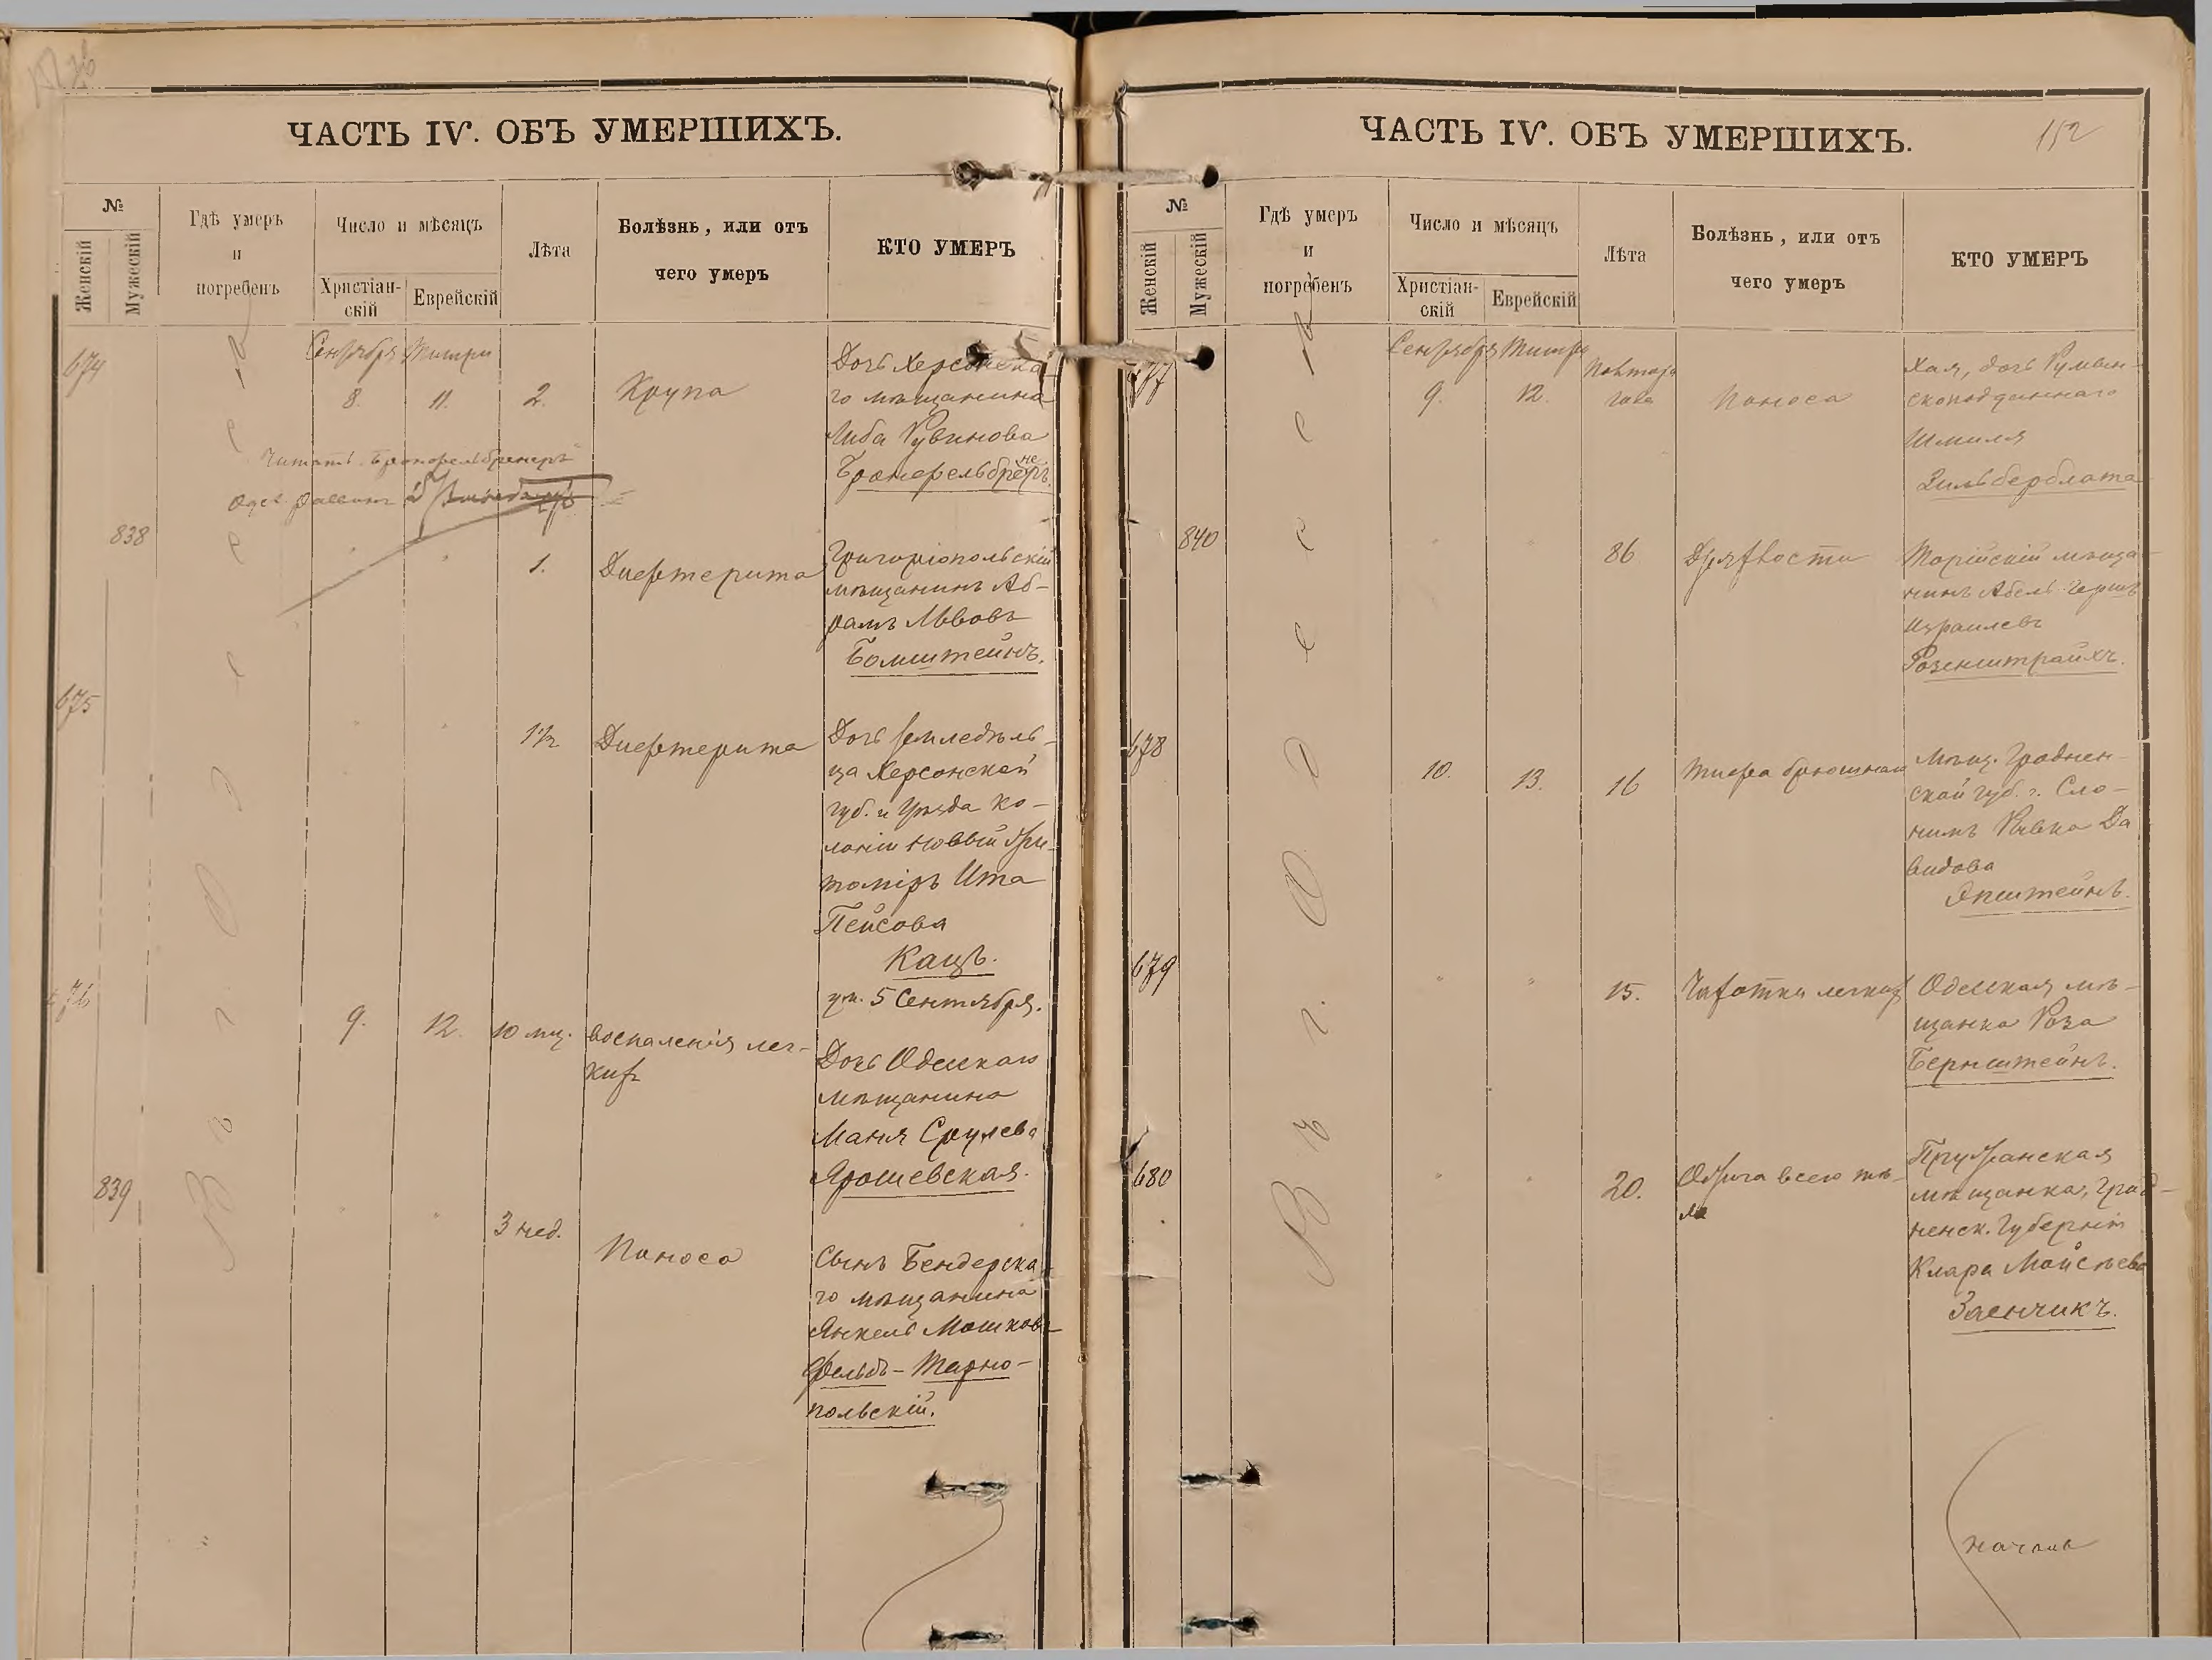 ЧАСТЬ IV. ОБЪ УМЕРШИХЪ.
№
Женскій
Мужескій
Гдѣ умеръ
и
погребенъ
Число и мѣсяцъ
Христіан-
скій
Еврейскій
Лѣта
Болѣзнь, или отъ
чего умеръ
КТО УМЕРЪ
Въ г. Одессѣ
674
Сентября Тишри
8. 11. 2.
Крупа
Дочь Херсонска-
го мѣщанина
Либа Рувинова
не
Читать
Одес. раввин
838
" " 1.
Дифтерита
Григоріопольскій
мѣщанинъ Аб-
рамъ Лѣвовъ
Бомштейнъ.
675
" " 1½
Дифтерита
Дочь Земледѣль-
ца Херсонской
губ. и уѣзда ко-
лоніи Новый Жи-
томіръ Ита
Пейсова
Кацъ.
ум. 5 Сентября.
676
9. 12. 10 мц.
воспаленія лег-
кихъ
Дочь Одесскаго
мѣщанина
Маня Срулева
Ярошевская.
839
" " 3 нед.
Поноса
Сынъ Бендерска-
го мѣщанина
Янкель Мошковъ
Фельдъ-Тарно-
польскій.
ЧАСТЬ IV. ОБЪ УМЕРШИХЪ.
152
№
Женскій
Мужескій
Гдѣ умеръ
и
погребенъ
Число и мѣсяцъ
Христіан-
скій
Еврейскій
Лѣта
Болѣзнь, или отъ
чего умеръ
КТО УМЕРЪ
Въ г. Одессѣ
677
Сентября Тишри
9. 12.
Полтора
года
Поноса
Хая, дочь Румын-
скоподданнаго
Шмиля
Зильберблата
840
" " 86
Дряхлости
мѣща-
нинъ Абель-Гершъ
Израилевъ
Розенштрайхъ.
678
10. 13. 16
Тифа брюшнаго
Мѣщ. Гроднен-
ской губ. г. Сло-
нимъ Ривка Да
видова
Эпштейнъ.
679
" " 15.
Чахотки легкихъ
Одесская мѣ-
щанка Роза
Бернштейнъ.
680
" " 20.
Обжога всего тѣ-
ла
Пружанская
мѣщанка, Грод-
ненск. Губерніи
Клара Мойсѣева
Заенчикъ.